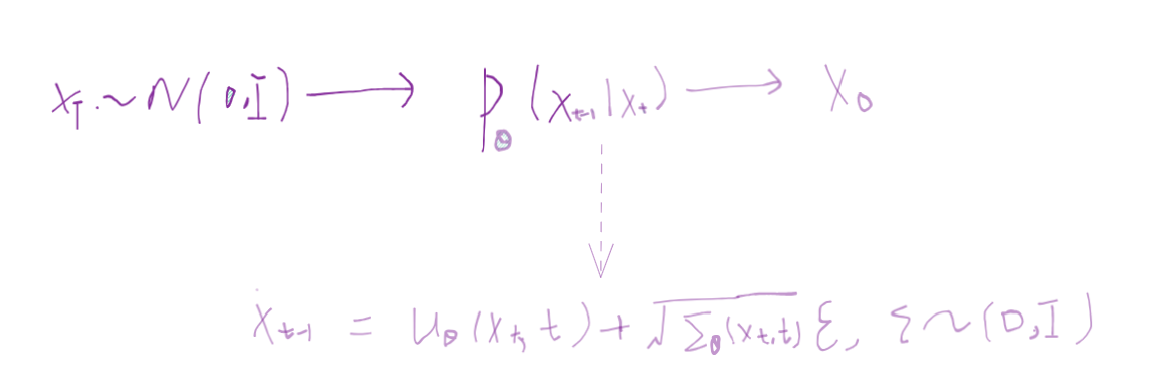 x_T ~ N(0,I) ⟶ p_θ(x_{t-1}|x_t) ⟶ x_0
x_{t-1} = μ_θ(x_t, t) + √Σ_θ(x_t,t) ξ, ξ ~ (0,I)